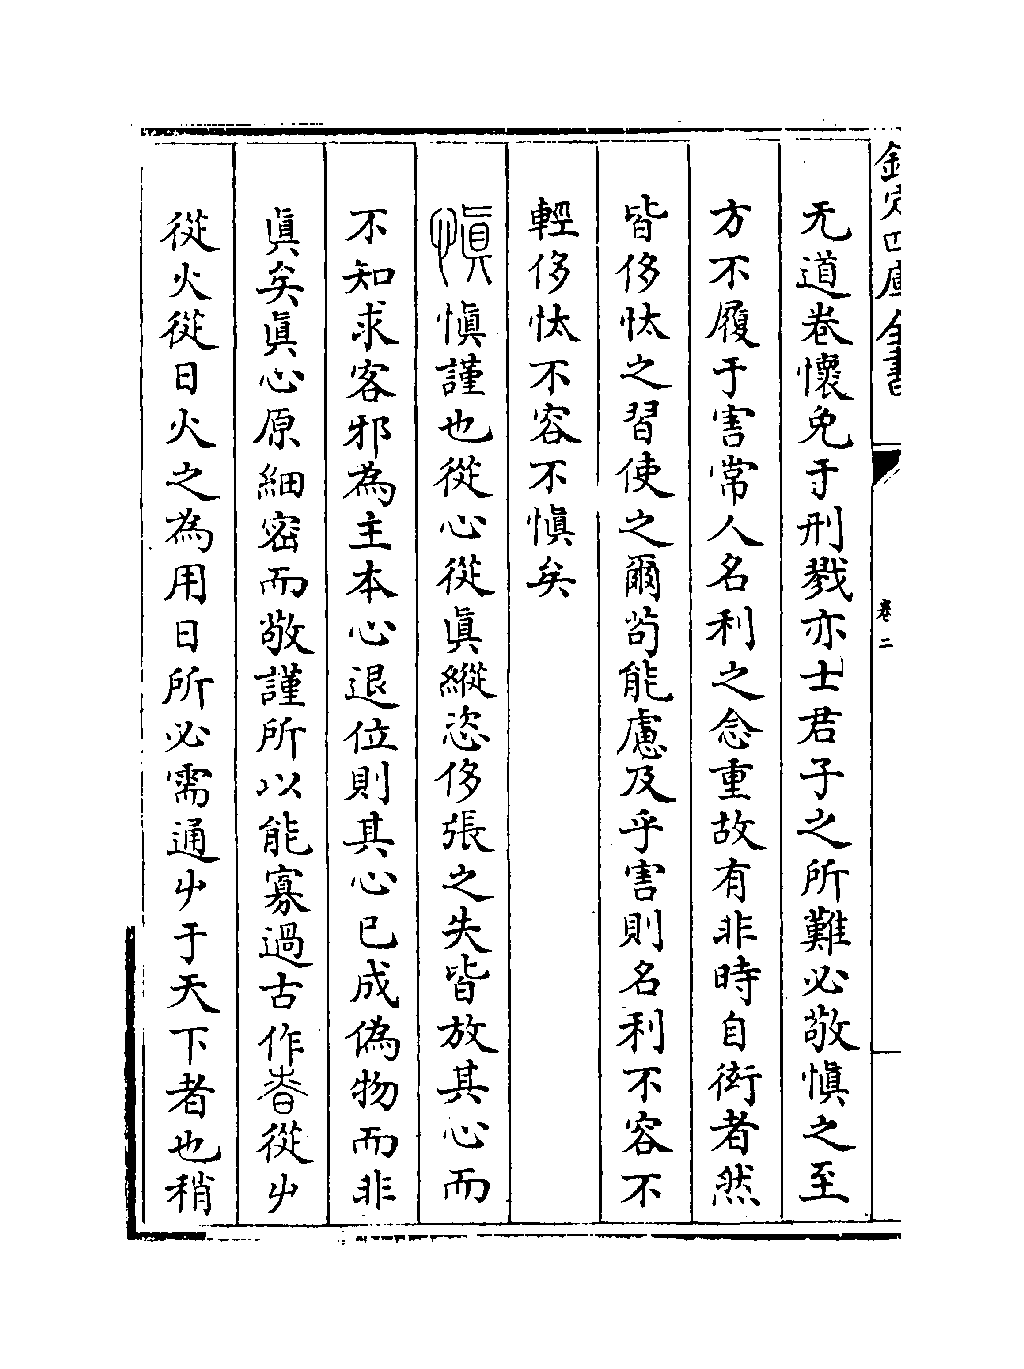 欽定四庫全書
卷二
无道卷懷免于刑戮亦士君子之所難必敬慎之至
方不履于害常人名利之念重故有非時自衒者然
皆侈忲之習使之爾茍能慮及乎害則名利不容不
輕侈忲不容不慎矣
慎慎謹也從心從眞縱恣侈張之失皆放其心而
不知求客邪為主本心退位則其心已成偽物而非
眞矣眞心原細密而敬謹所以能寡過古作昚從屮
從火從日火之為用日所必需通屮于天下者也稍